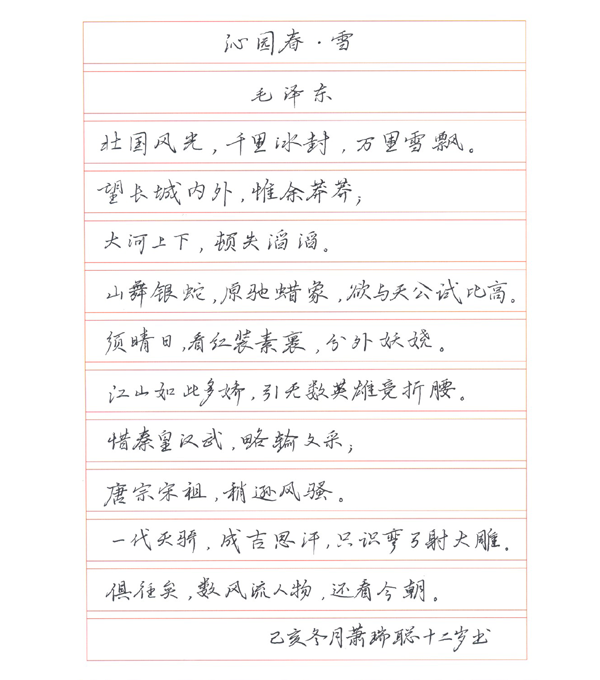 沁园春·雪
毛泽东
壮国风光,千里冰封,万里雪飘。
望长城内外,惟余莽莽;
大河上下,顿失滔滔。
山舞银蛇,原驰蜡象,欲与天公试比高。
须晴日,看红装素裹,分外妖娆。
江山如此多娇,引无数英雄竞折腰。
惜秦皇汉武,略输文采;
唐宗宋祖,稍逊风骚。
一代天骄,成吉思汗,只识弯弓射大雕。
俱往矣,数风流人物,还看今朝。
己亥冬月萧瑞聪十二岁书